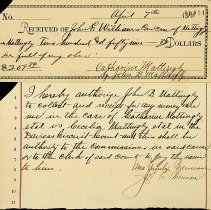 No. April 7th 188
RECEIVED OF John E. Williams Com. of Mattingly
Mattingly Two hundred fifty nine DOLLARS
in full of my share
$ 259 Catharine Mattingly
By John B Mattingly
I hereby authorize John B Mattingly
to collect and receipt for any money due
me in the case of Catharine Mattingly
etal vs Mattingly etal in the
Daviess Circuit Court and this shall be
authority to the commissioner in said cause
or to the clerk of said court to pay the same
to him.